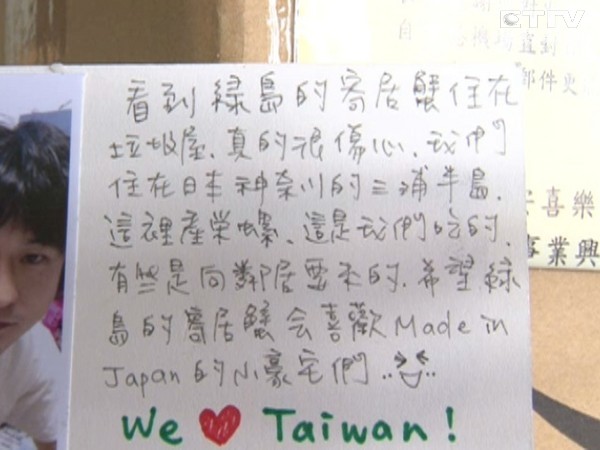 ETTV
自
直到
部件更
看到綠島的寄居蟹住在
垃圾屋、真的很傷心、我們
住在日本神奈川的三浦半島、
這裡產榮螺、這是我們吃的、
有些是向鄰居要來的、希望綠
島的寄居蟹会喜歡Made in
Japan的小豪宅們
We ♥ Taiwan!
喜樂
事業興